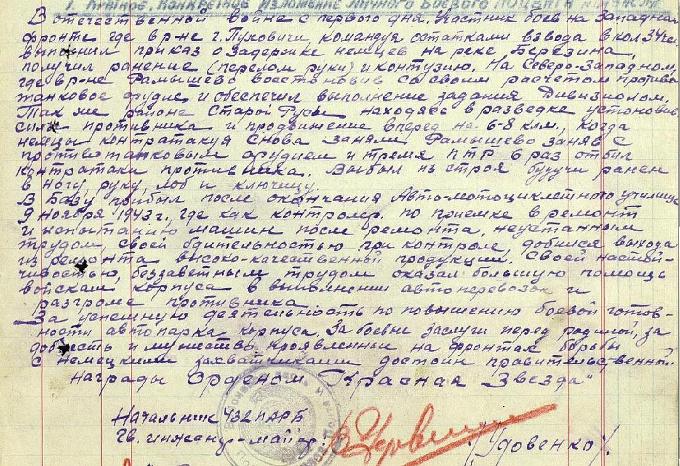 I. Краткое, конкретное изложение личного боевого подвига
В отечественной войне с первого дня. Участник боев на Западном
фронте где в р-не г. Пуховичи командуя остатками взвода в кол. 34 чел
выполнил приказ о задержке немцев на реке Березина
получил ранение (перелом руки) и контузию. На Северо-Западном,
где в р-не Рамышево восстановив со своим расчетом противо
танковое орудие и обеспечил выполнение задания Дивизионом.
Так же районе Старой Русы находясь в разведке установив
силы противника и продвижение вперед на 6-8 клм., когда
немцы контратакуя снова заняли Рамышево заняв с
противотанковым орудием и тремя ПТР 6 раз отбил
контратаки противника. Выбыл из строя будучи ранен
в ногу, руку, лоб и ключицу.
В базу прибыл после окончания Авто-мотоциклетного училища
9 ноября 1943 г., где как контролер по приемке в ремонт
и испытанию машин после ремонта, неустанным
трудом, своей бдительностью при контроле, добился выхода
из ремонта высоко-качественной продукции. Своей настой-
чивостью, беззаветным, трудом оказал большую помощь
войскам корпуса в выполнении автоперевозок и
разгроме противника.
За успешную деятельность по повышению боевой готов-
ности автопарка корпуса. За боевые заслуги перед родиной, за
доблесть и мужество, проявленные на фронтах борьбы
с немецкими захватчиками достоин правительственной
награды Орденом "Красная Звезда"
Начальник 432 ПАРБ
гв. инженер-майор: /Удовенко/